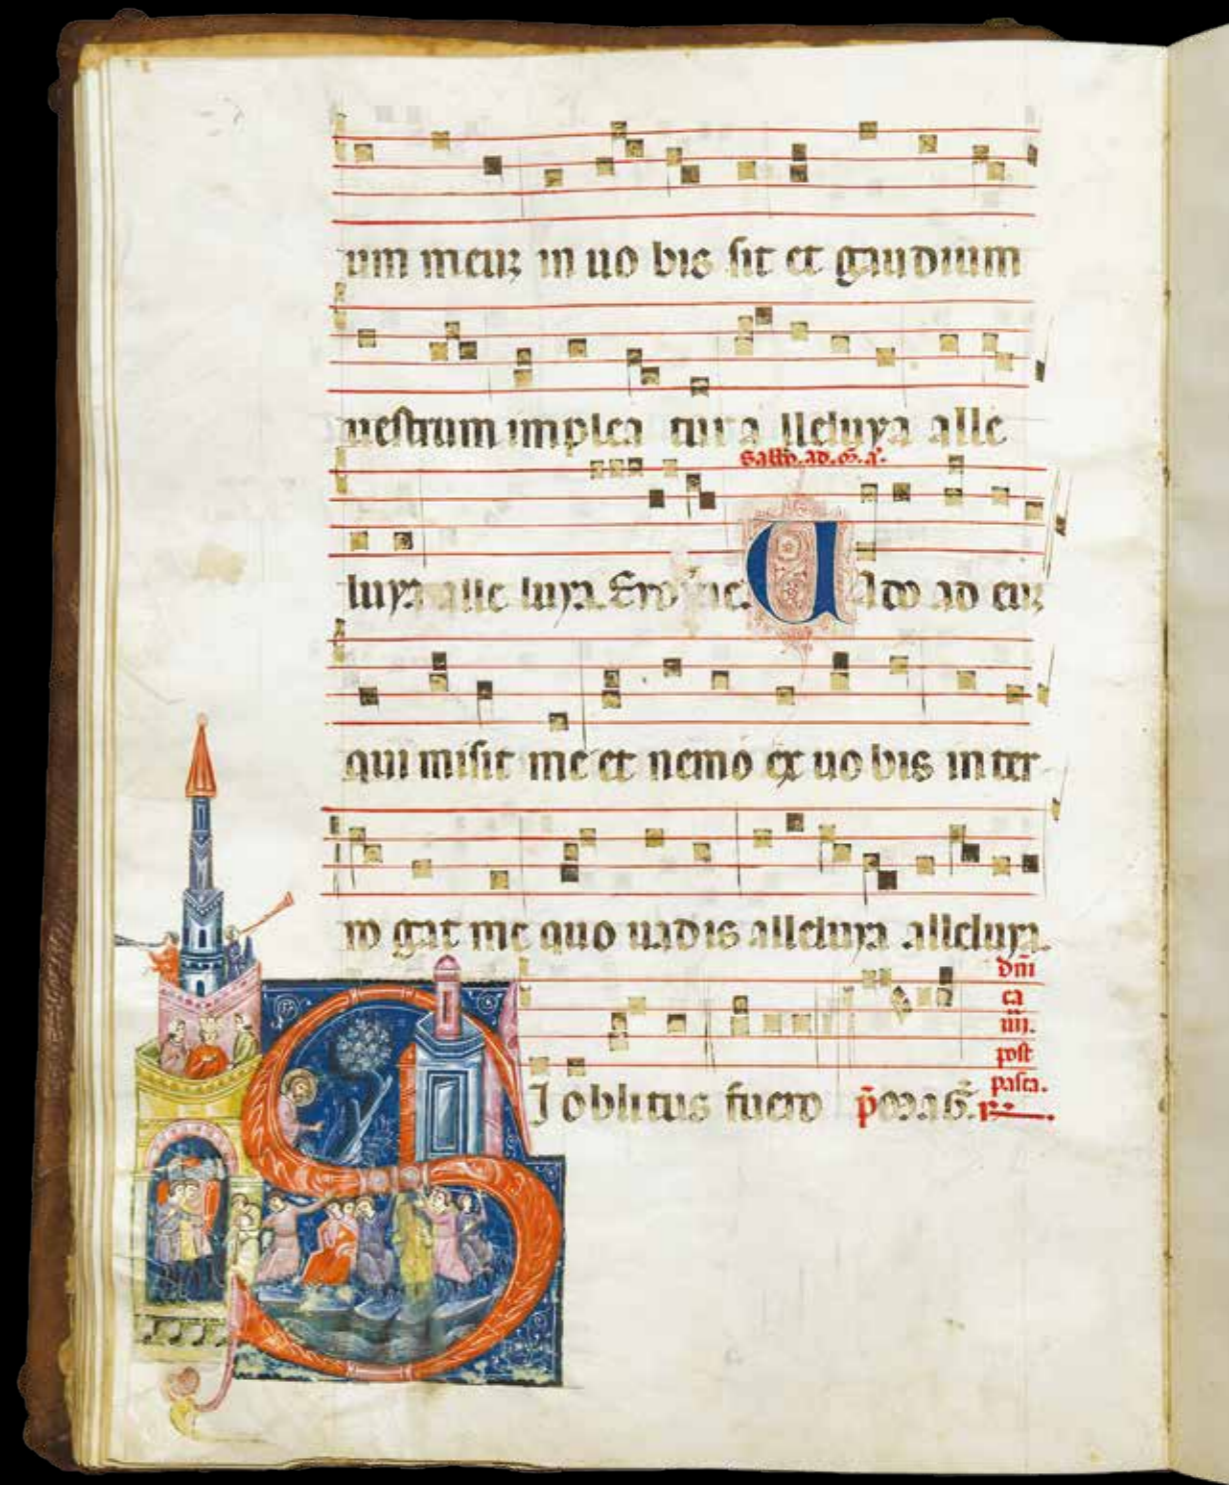 um meuʒ in uo bis sit et gaudium
uestrum implea tur a lleluya alle
Sabbo. ad. m̄. a͛.
luya alle luya. Evovae. UAdo ad euʒ
qui misit me et nemo ex uo bis inter
ro gat me quo uadis alleluya alleluya.
dn̄i
ca
iiii.
post
pasca.
SI oblitus fuero